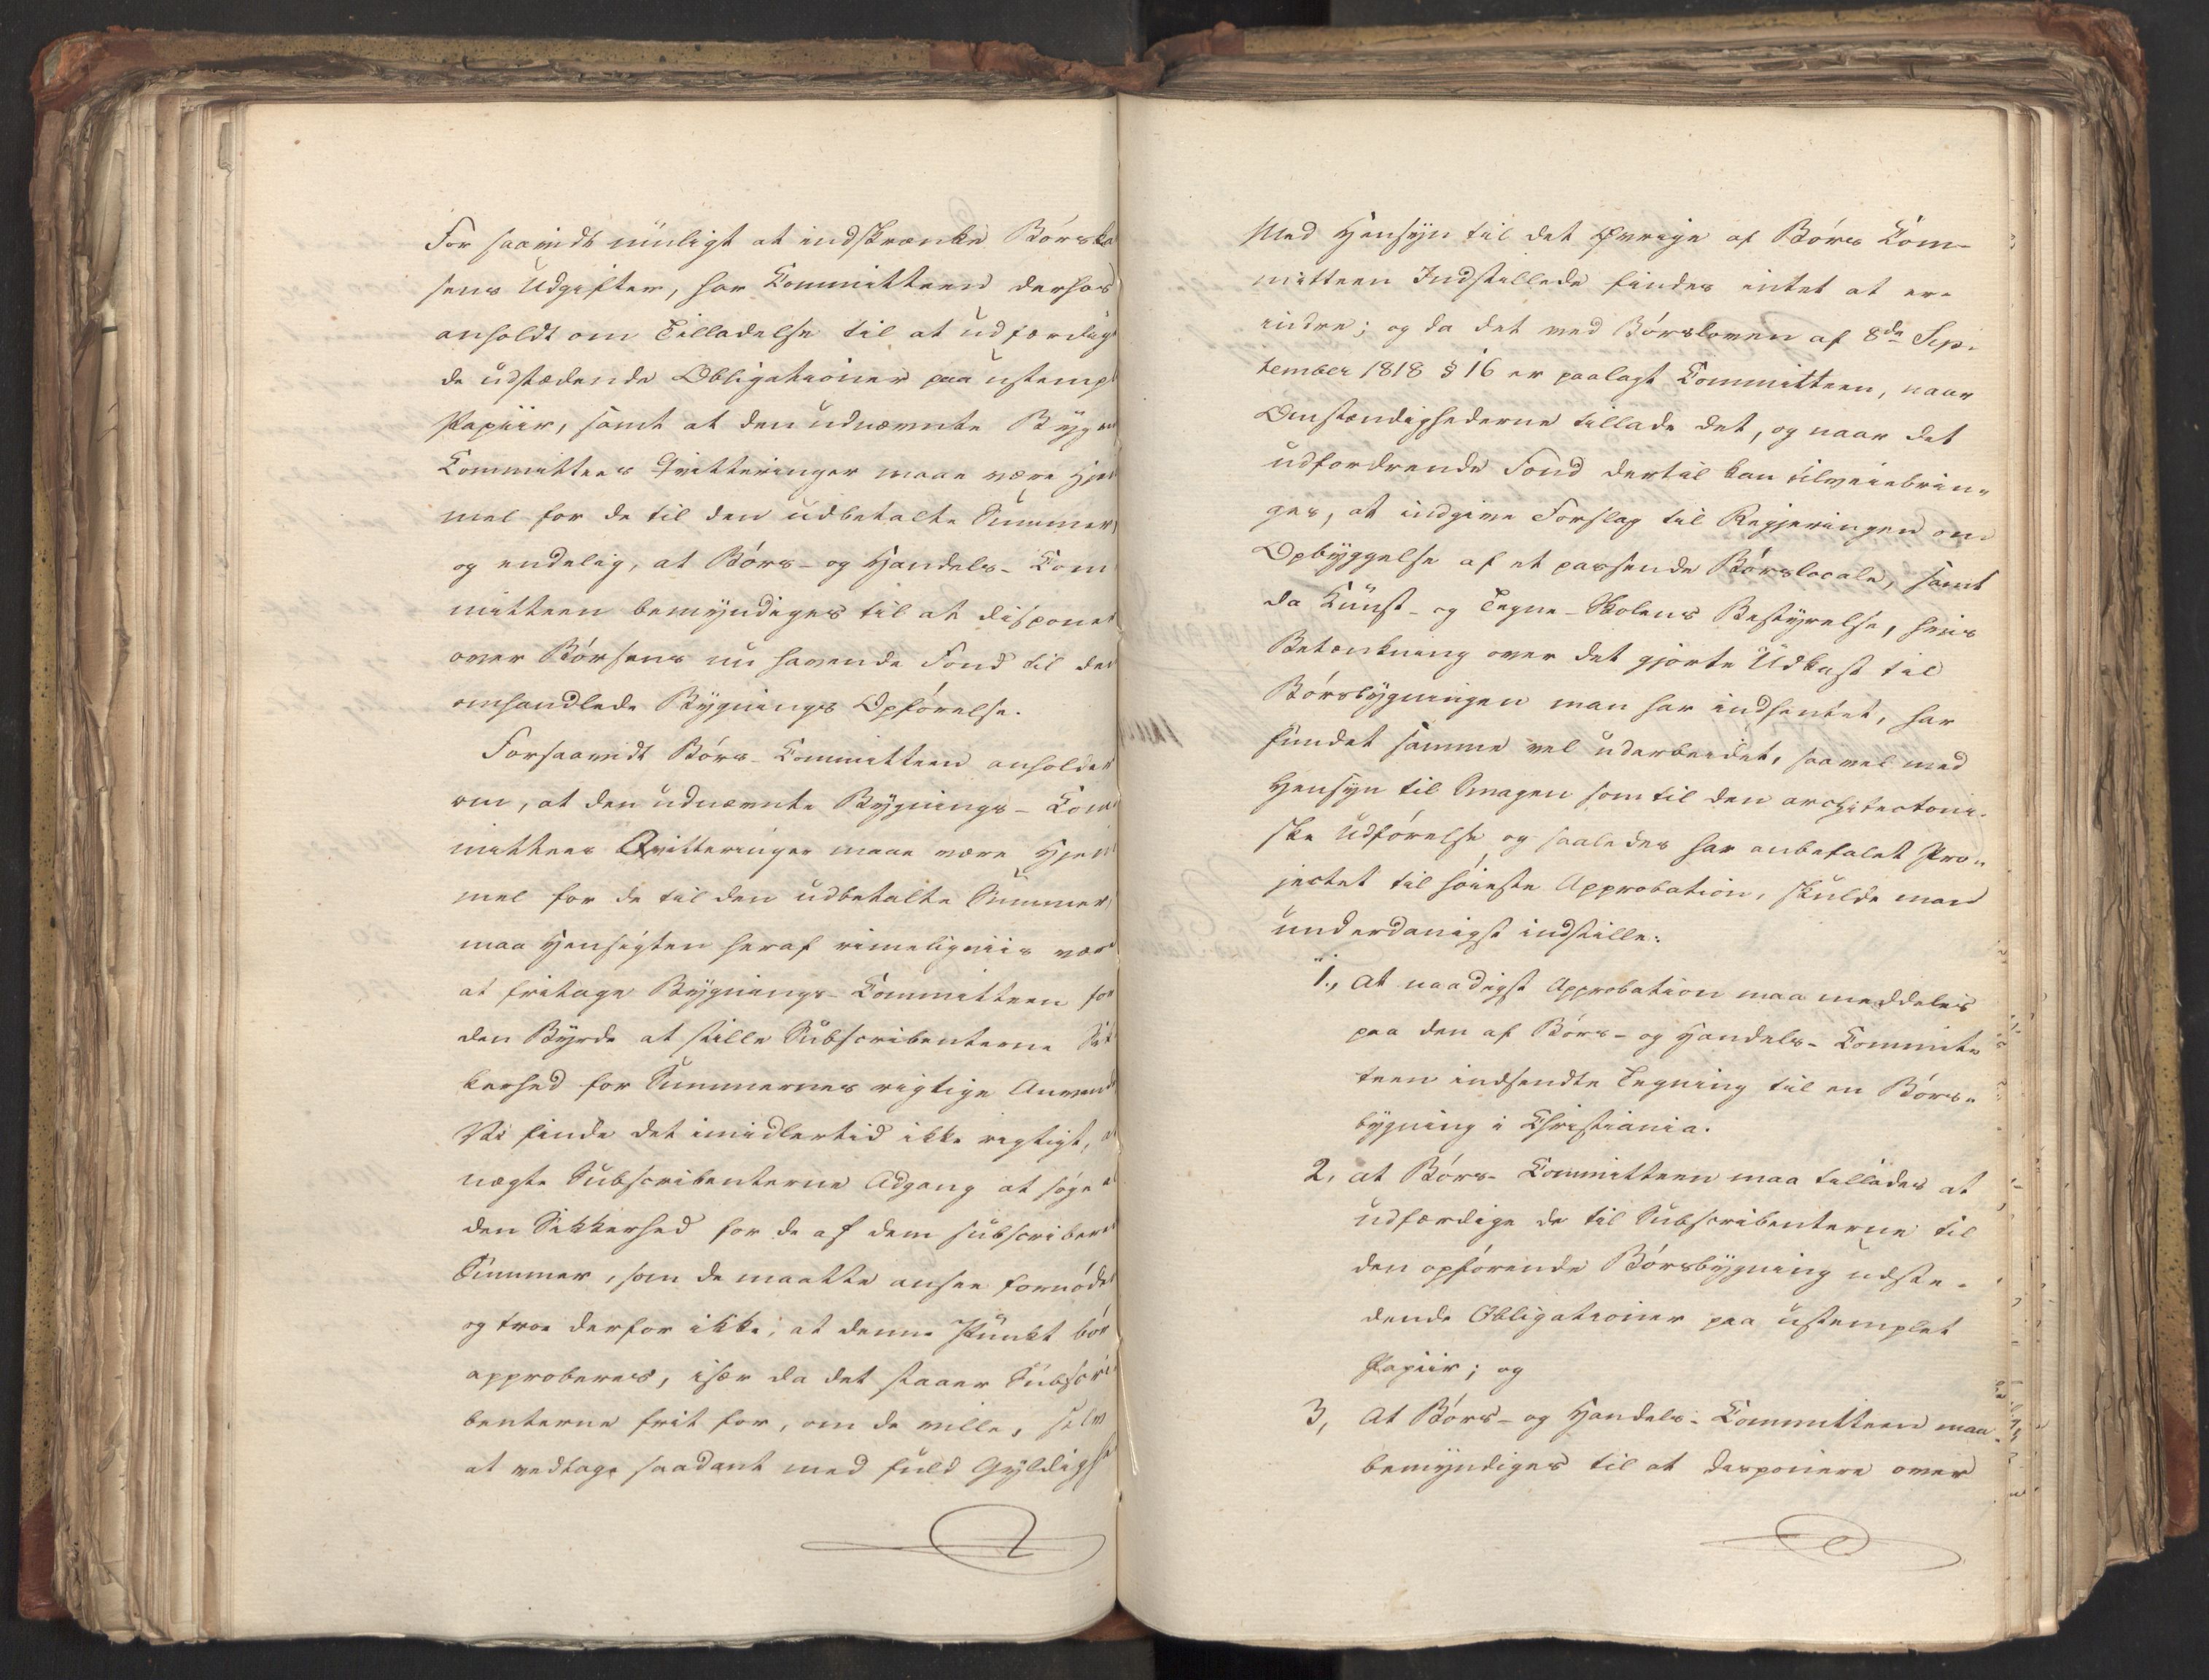 For saavidt muligt at indskrænke Börska
sens Udgifter, har Committeen derhos
anholdt om Tilladelse til at udfærdige
de udstædende Obligationer paa ustempl
Papiir, samt at den udnævnte Bygn
Committees Qvitteringer maae være Hjem
mel for de til den udbetalte Summer,
og endelig, at Börs- og Handels-Com
mitteen bemyndiges til at disponer
over Börsens nu havende Fond til den
omhandlede Bygnings Opförelse.
Forsaavidt Börs-Committeen anholder
om, at den udnævnte Bygnings-Com
mittees Qvitteringer maae være Hjem
mel for de til den udbetalte Summer,
maa Hensigten heraf rimeligviis vær
at fritage Bygnings-Committeen for
den Byrde at stille Subscribenterne Sik
kerhed for Summernes rigtige Anvend
Vi finde det imidlertid ikke rigtigt, a
nægte Subscribenterne Adgang at söge a
den Sikkerhed for de af dem subscribere
Summer, som de maatte ansee fornöde
og troe derfor ikke, at denne Punkt bör
approberes, især da det staaer Subscri
benterne frit for, om de ville, selv
at vedtage saadant med fuld Gyldigh
Med Hensyn til det Øvrige af Börs Com-
mitteen Indstillede findes intet at er-
indre; og da det ved Börsloven af 8de Sep-
tember 1818 § 16 er paalagt Committeen, naar
Omstændighederne tillade det, og naar det
udfordrende Fond dertil kan tilveiebrin-
ges, at indgive Forslag til Regjeringen om
Opbyggelse af et passende Börslocale, samt
da Kunst- og Tegne-Skolens Bestyrelse, hvis
Betænkning over det gjorte Udkast til
Börsbygningen man har indhentet, har
fundet samme vel udarbeidet, saavel med
Hensyn til Smagen som til den architectoni-
ske Udförelse og saaledes har anbefalet Pro-
jectet til höieste Approbation, skulde man
underdanigst indstille:
1., At naadigst Approbation maa meddeles
paa den af Börs- og Handels-Commit-
teen indsendte Tegning til en Börs-
bygning i Christiania.
2, at Börs-Committeen maa tillades at
udfærdige de til Subscribenterne til
den opförende Börsbygning udstæ-
dende Obligationer paa ustemplet
Papiir; og
3, At Börs- og Handels-Committeen maa
bemyndiges til at disponere over